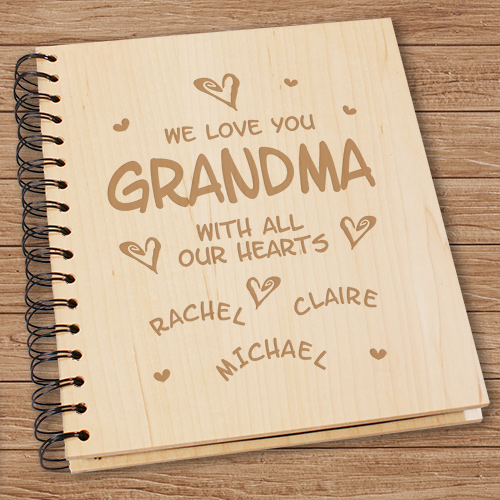 WE LOVE YOU
GRANDMA
WITH ALL
OUR HEARTS
RACHEL CLAIRE
MICHAEL